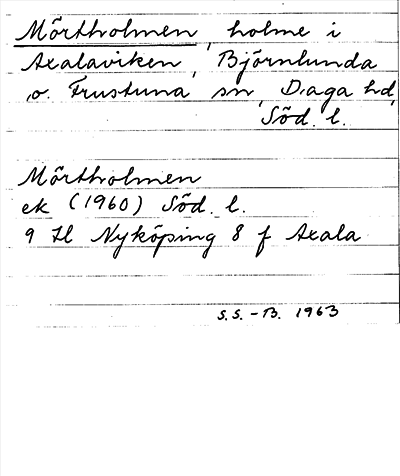 Mörtholmen, holme i
Axalaviken, Björnlunda
o. Frustuna sn, Daga hd,
Söd. l.
Mörtholmen
ek (1960) Söd. l.
9 H Nyköping 8 f Axala
S.S.-B. 1963